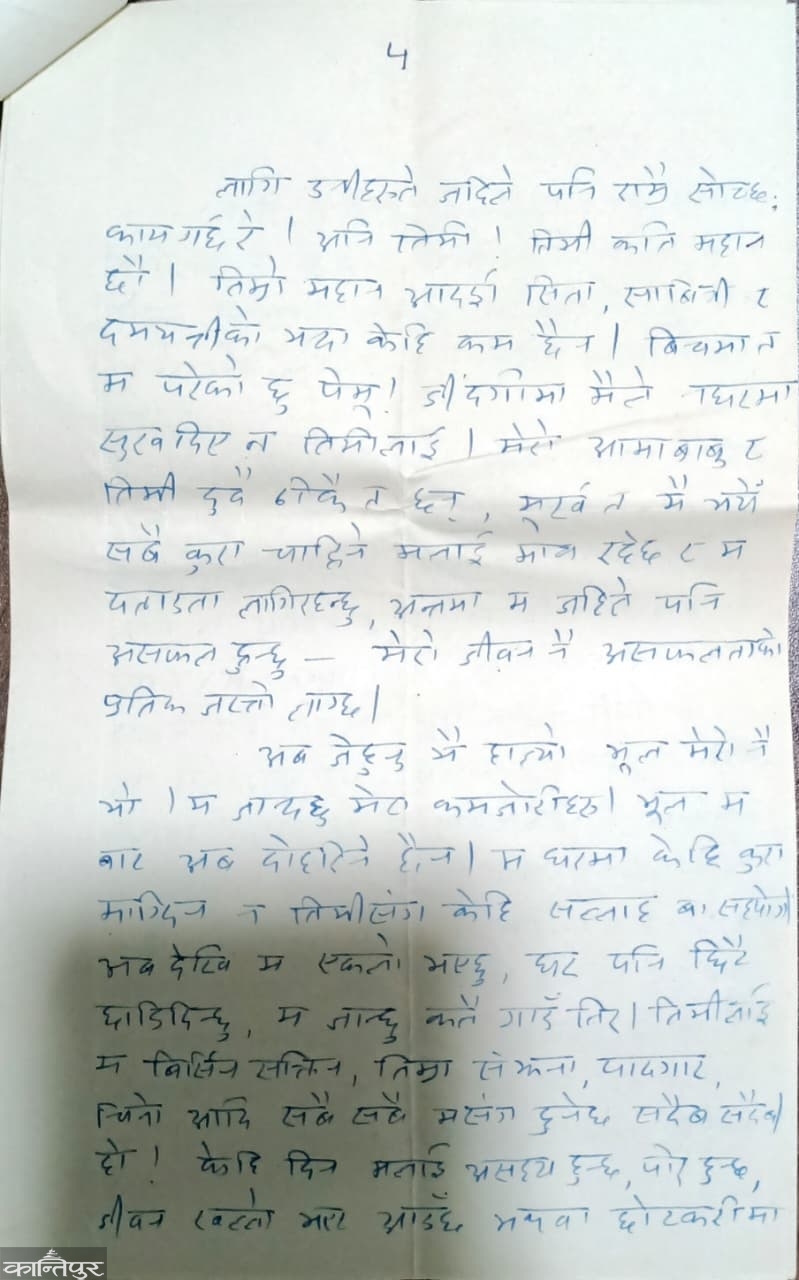 ५
लागि उनीहरुले जहिले पनि राम्रै सोच्छ;
काम गर्छ रे । अनि तिमी ! तिमी कति महान
छौ । तिम्रो महान आदर्श सिता, साबित्री र
दमयन्तीको भन्दा केहि कम छैन । बिचमा त
म परेको छु पेमू ! जींदगीमा मैले न घरमा
सुख दिए न तिमीलाई । मेरो आमाबाबु र
तिमी दुवै ठीकै त छन्, मूर्ख त मै भयें
सबै कुरा चाहिने मलाई भोक रहेछ र म
लागिरहन्छु, अन्तमा म जहिले पनि
असफल हुन्छु — मेरो जीवन नै असफलताको
प्रतिक जस्तो लाग्छ ।
अब जेहुन्छ मै हात्यो भूल मेरो नै
भो । म जान्दछु मेरा कमजोरीहरु । भूल म
बाट अब दोहोरिने छैन । म घरमा केहि कुरा
माग्दिन न तिमीसंग केहि सल्लाह वा सहयोग
अब देखि म एक्लो भएछु, घर पनि छिटै
छाडिदिन्छु, म जान्छु कतै गाउँ तिर । तिमीलाई
म बिर्सिन सक्तिन, तिम्रा संझना, यादगार,
चिनो आदि सबै सबै मसंग हुनेछ सदैब सदैब
हो ! केहि दिन मलाई असह्य हुन्छ, पीर हुन्छ,
जीवन खल्लो भएर आउँछ अथवा छोटकरीमा
कान्तिपुर